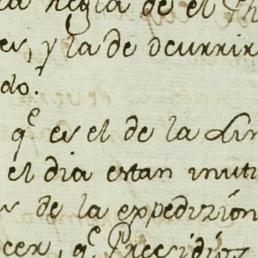 la Regla de el Th
es, y la de ocurrir
do.
q.e es el de la Lin
el dia estan inuti
de la expedizión
cer, q.e Presidios